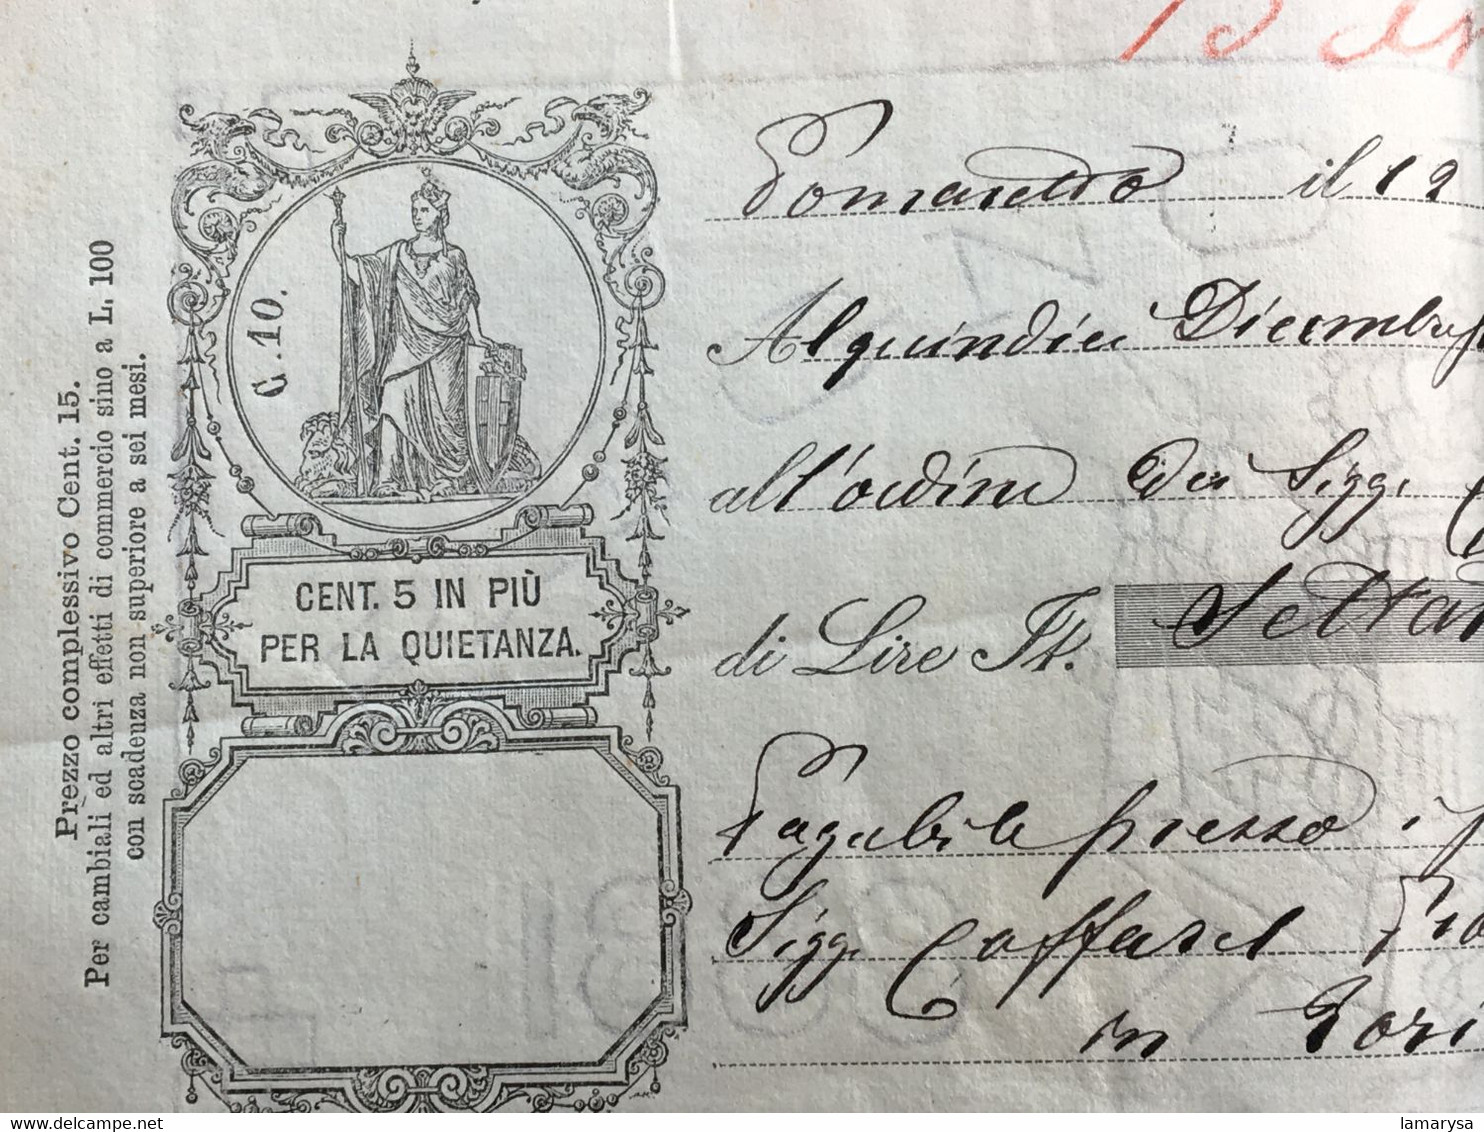 Prezzo complessivo Cent. 15.
Per cambiali ed altri effetti di commercio sino a L. 100
con scadenza non superiore a sei mesi.
C. 10.
CENT. 5 IN PIÙ
PER LA QUIETANZA.
Pomaretto il 12
Al quindici Dicembre
all'ordine dei Sigg.
di Lire It. Setta
Pagabile presso i
Sigg. Caffarel
in Tori
delcampe.net
lamarysa